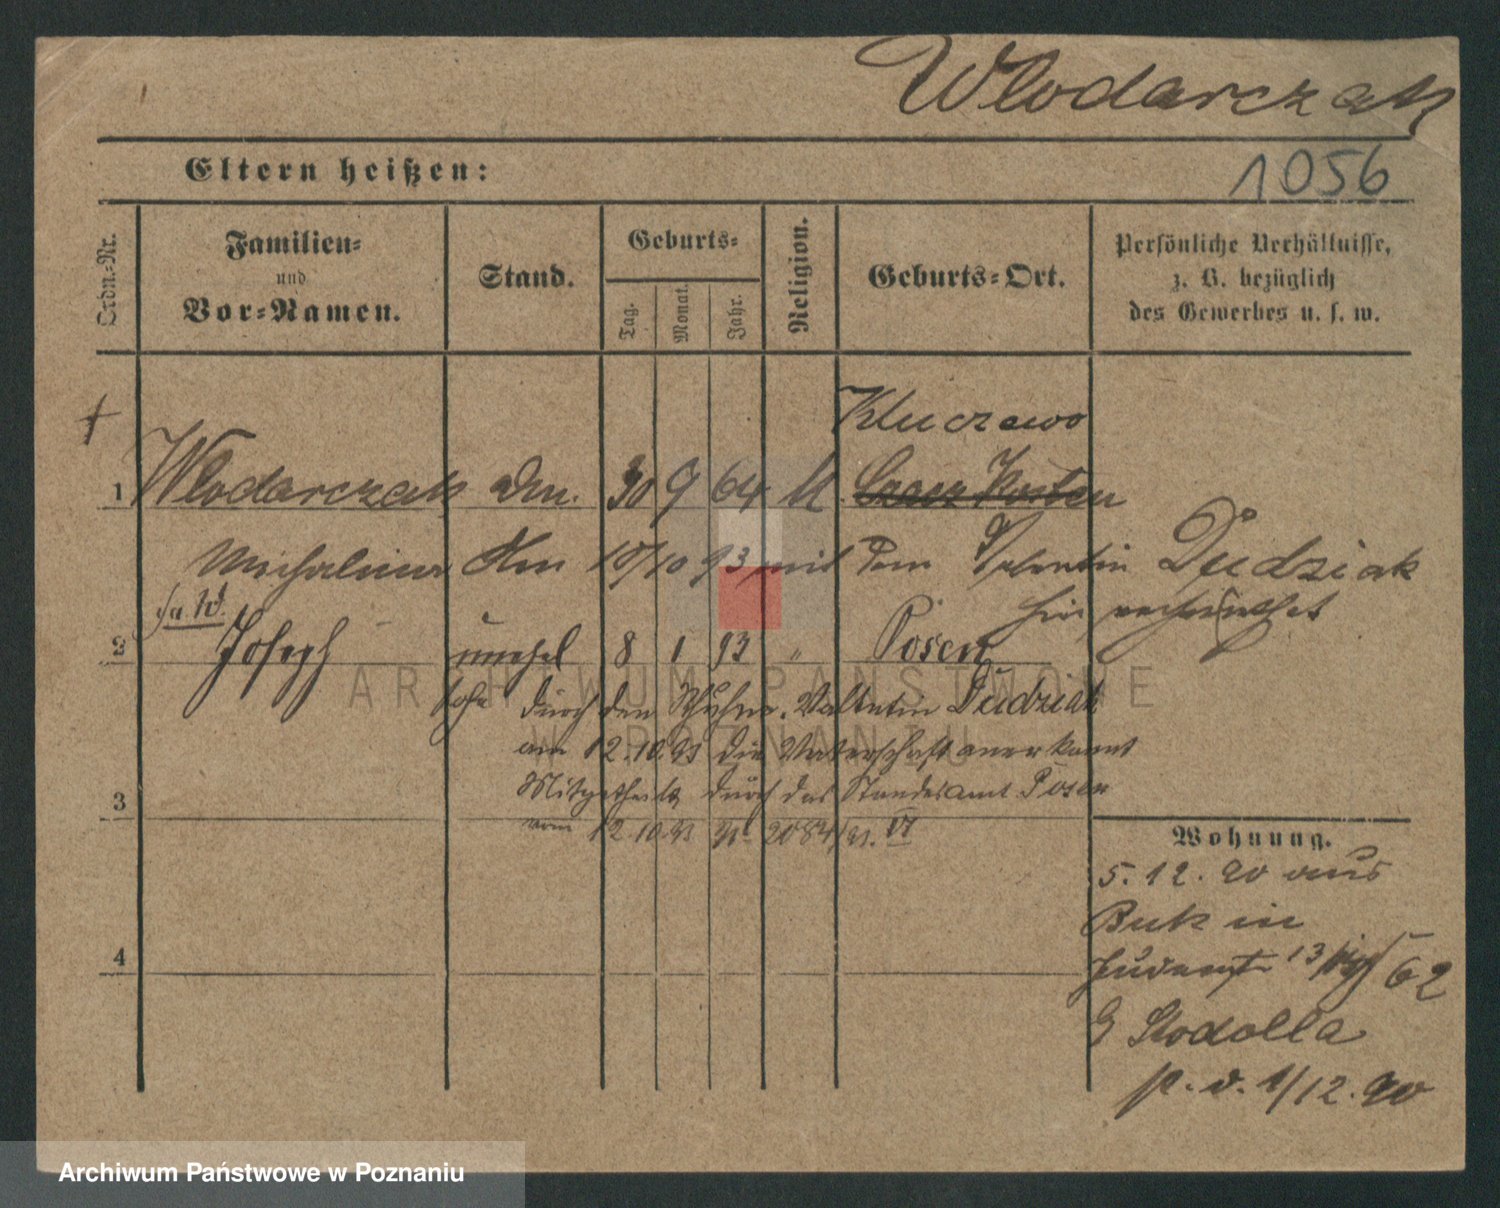 Wlodarczak
Eltern heißen:
1056
Ordn.-Nr.
Familien-
und
Vor-Namen.
Stand.
Geburts-
Tag.
Monat.
Jahr.
Religion.
Geburts-Ort.
Persönliche Verhältnisse,
z. B. bezüglich
des Gewerbes u. s. w.
Kluczewo
1 Wlodarczak 30 9 64 k Kosten
10/10 93 mit dem Valentin Dudziak
hier verheirathet
2 Joseph unehel 8 1 93 " Posen
Sohn durch den Valentin Dudziak
am 12.10.93 die Vaterschaft anerkannt
Mitgetheilt durch das Standesamt Posen
vom 12.10.93 2084/93. VI
3
4
Wohnung.
5.12.90 aus
Buk in
13 62
Stodolla
p. d. 1/12.90
ARCHIWUM PAŃSTWOWE
W POZNANIU
Archiwum Państwowe w Poznaniu